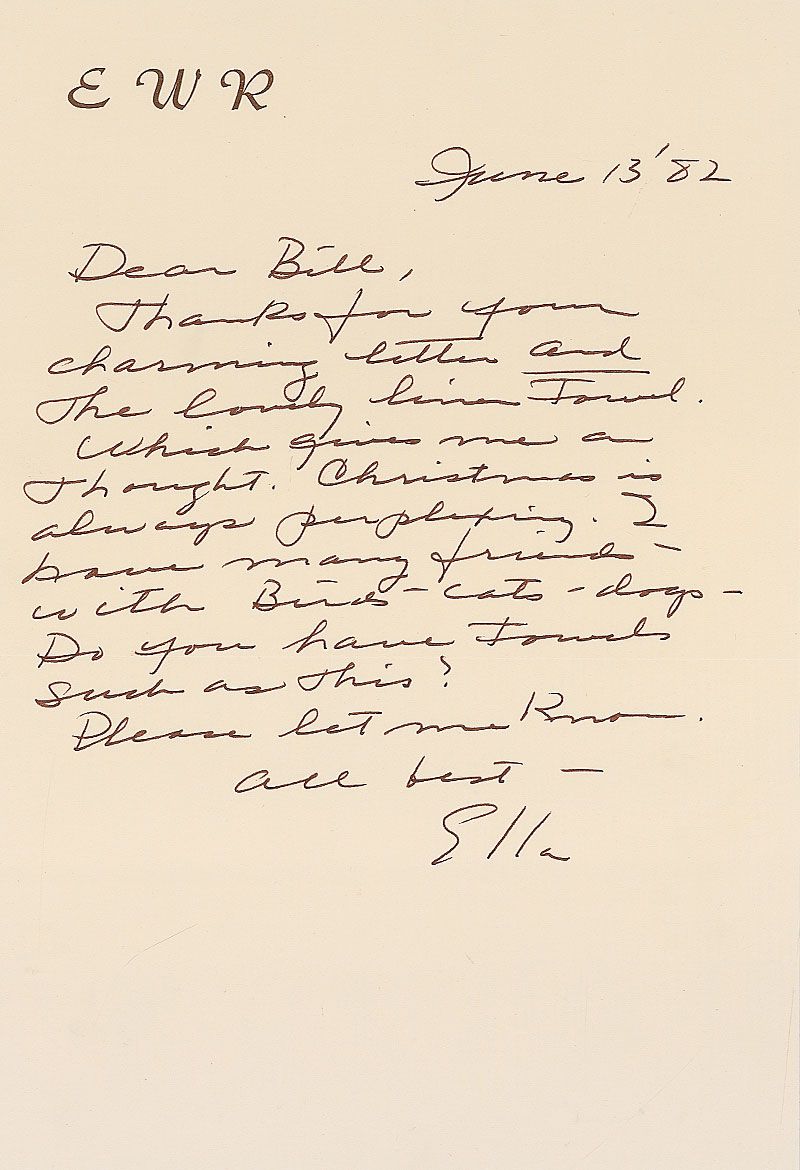 E W R
June 13 '82
Dear Bill,
Thanks for your
charming letter and
the lovely linen Towel.
Which gives me a
thought. Christmas is
always perplexing. I
have many friends -
with Birds - cats - dogs -
Do you have Towels
such as this?
Please let me know.
all best -
Ella